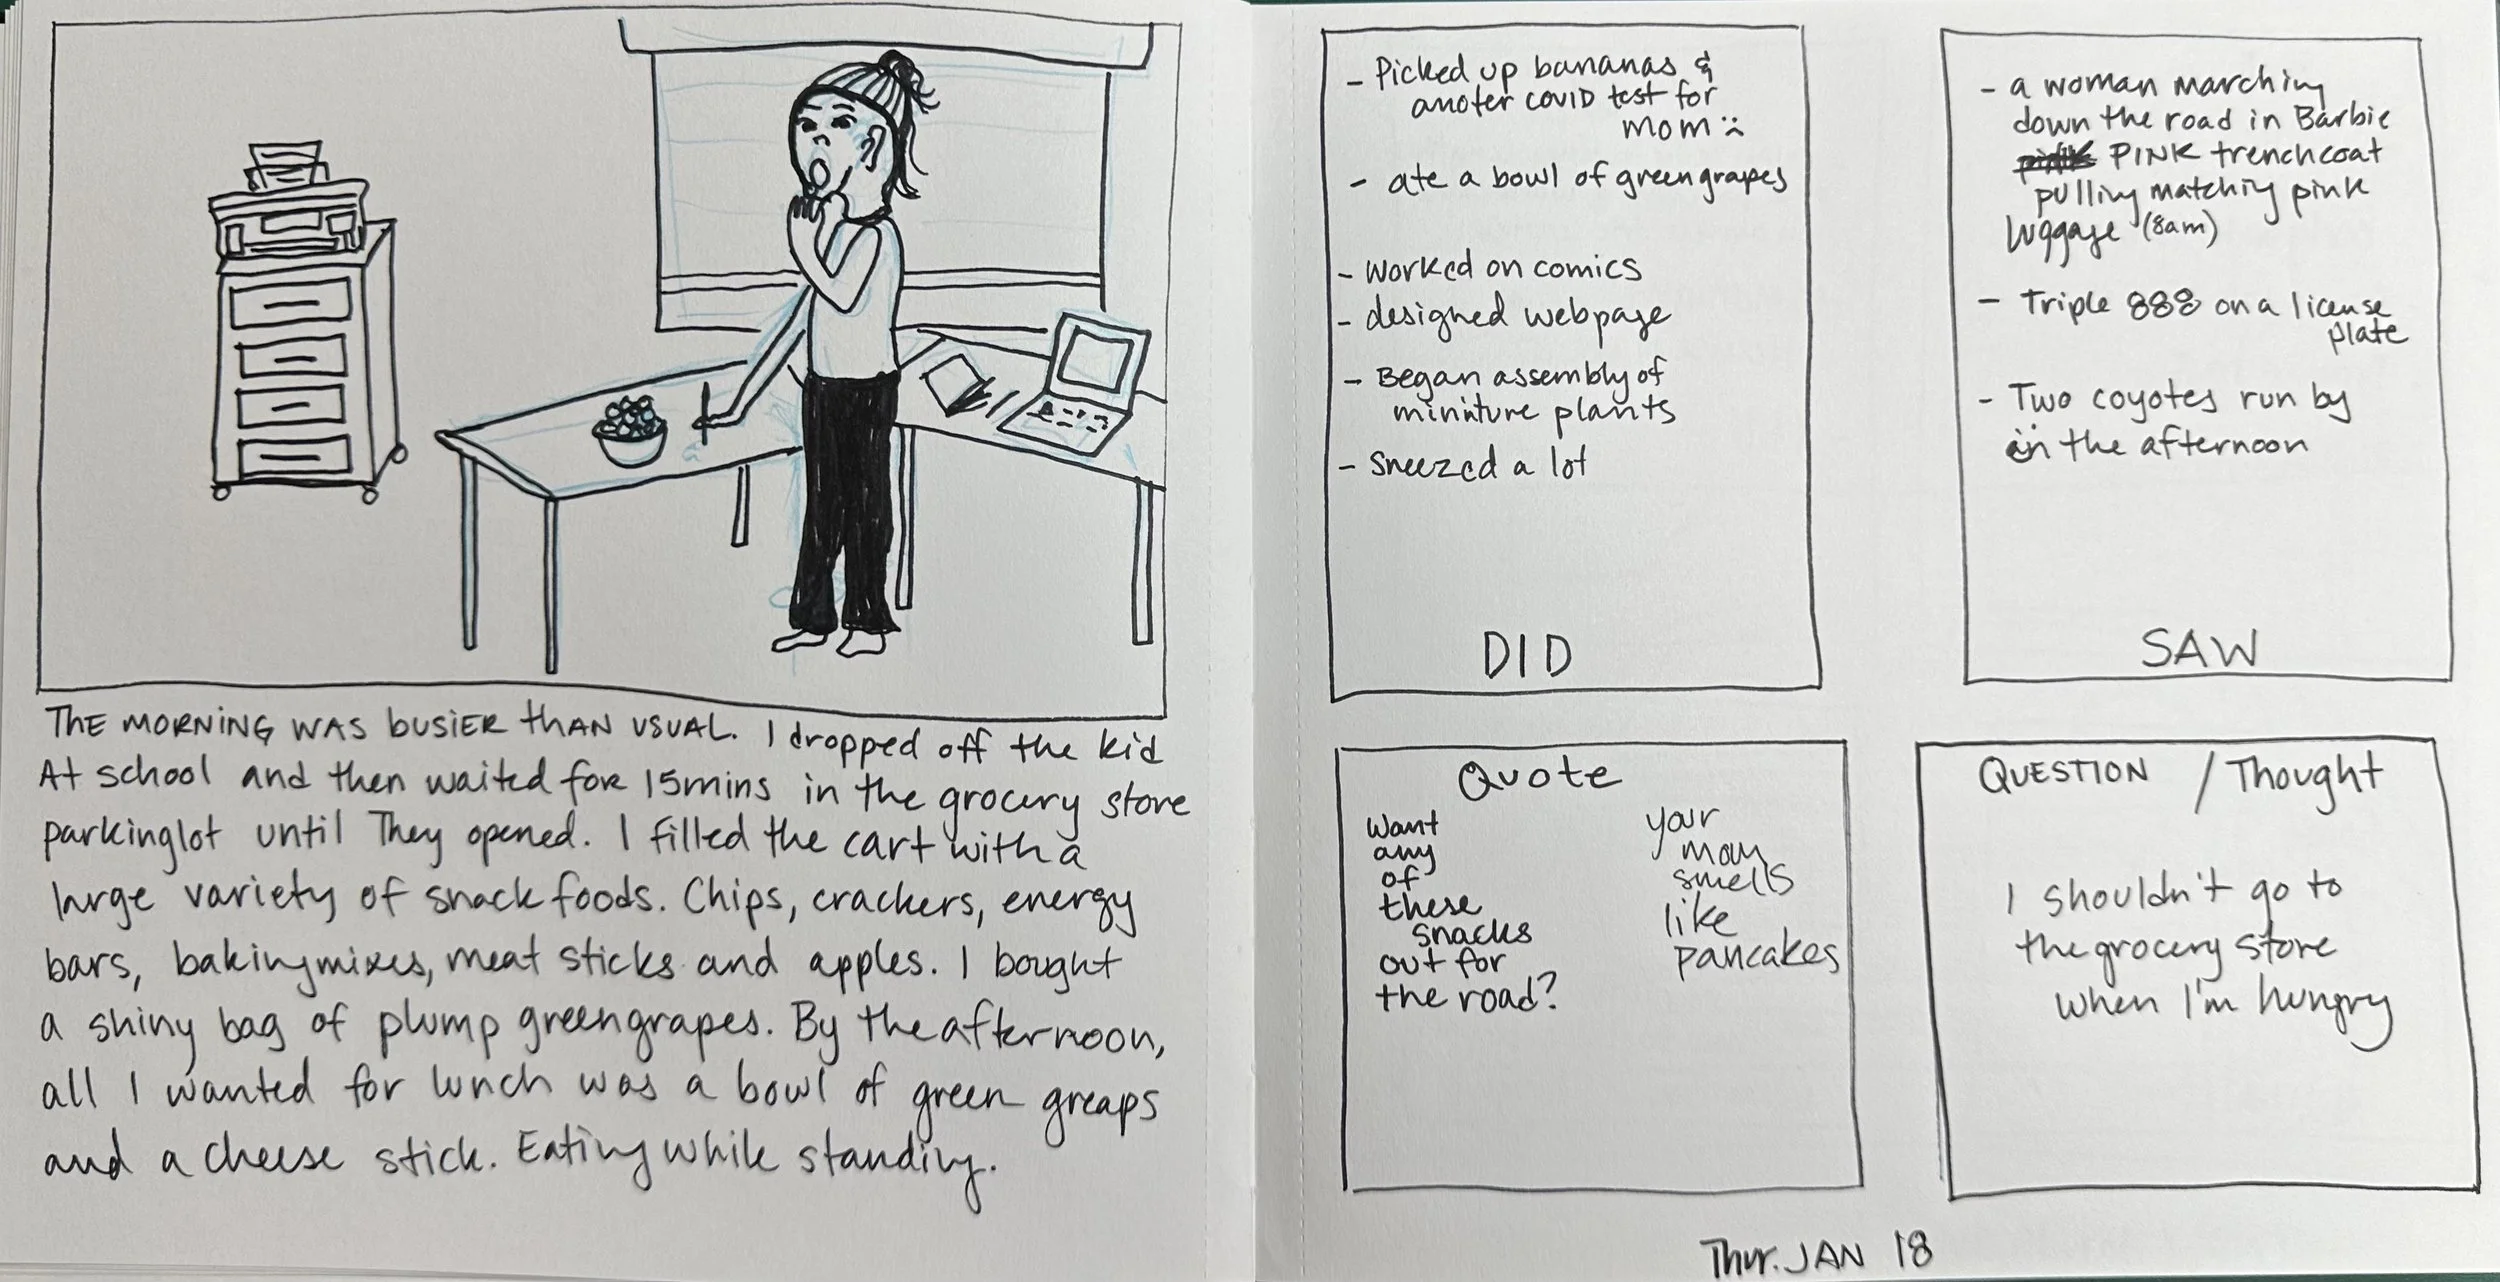 THE MORNING WAS BUSIER THAN USUAL. I dropped off the kid
At school and then waited for 15mins in the grocery store
parkinglot until They opened. I filled the cart with a
large variety of snack foods. Chips, crackers, energy
bars, bakingmixes, meat sticks and apples. I bought
a shiny bag of plump greengrapes. By the afternoon,
all I wanted for lunch was a bowl of green greaps
and a cheese stick. Eating while standing.
- Picked up bananas &
anoter COVID test for
mom :(
- ate a bowl of green grapes
- worked on comics
- designed webpage
- Began assembly of
miniture plants
- Sneezed a lot
DID
- a woman marching
down the road in Barbie
PINK trenchcoat
pulling matching pink
luggage (8am)
- Triple 888 on a license
plate
- Two coyotes run by
in the afternoon
SAW
Quote
Want
any
of
these
snacks
out for
the road?
your
mom
smells
like
pancakes
QUESTION / Thought
I shouldn't go to
the grocery store
when I'm hungry
Thur. JAN 18